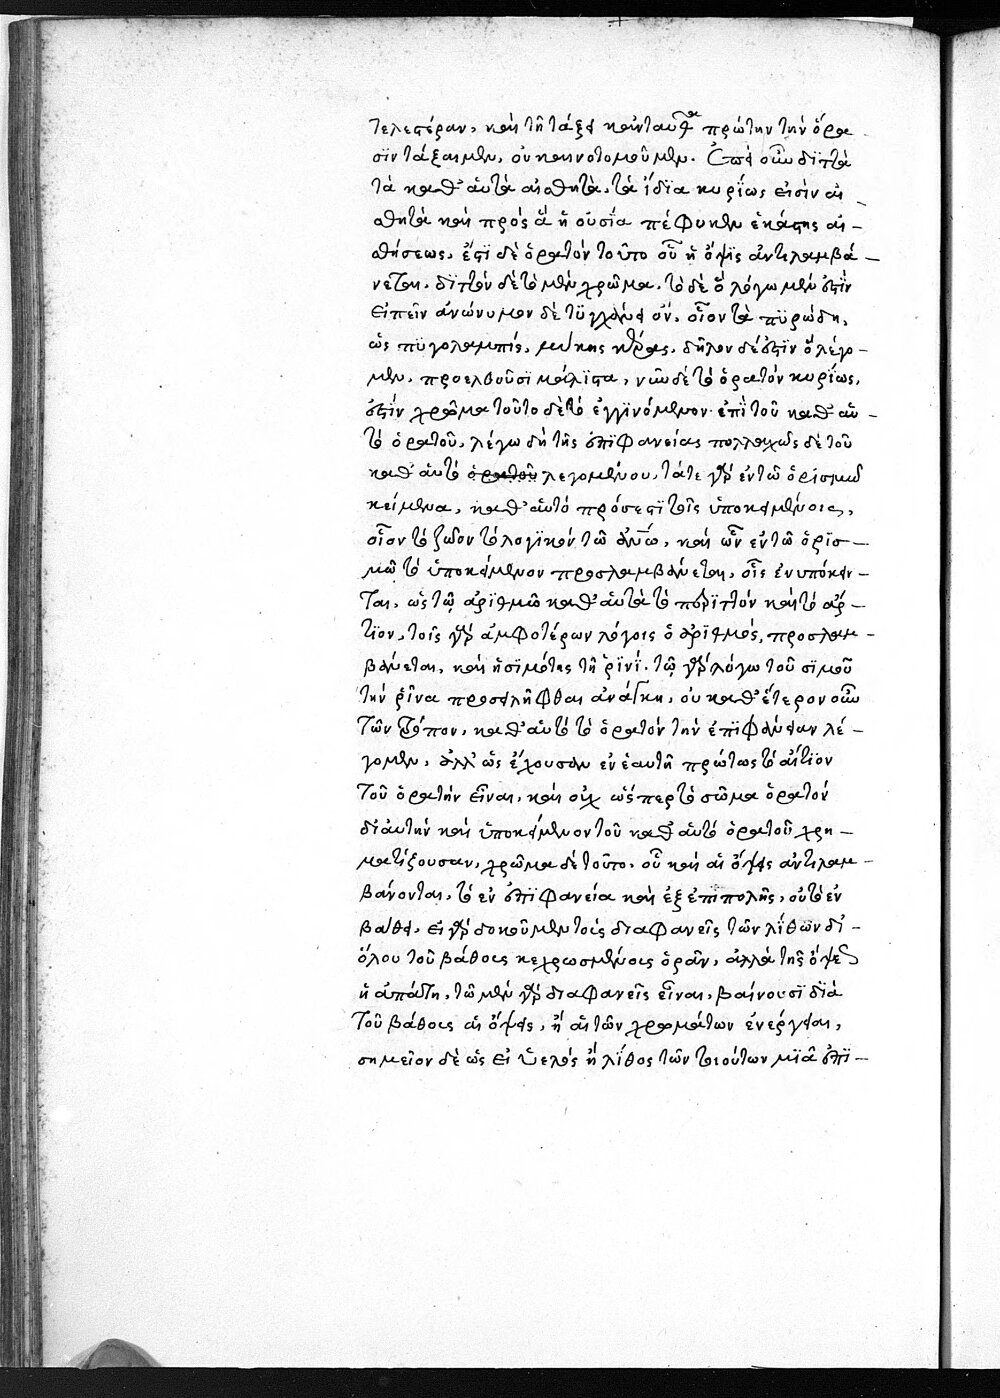 τελεστέραν, καὶ τῆ τάξει κἀνταῦθα πρώτην τὴν ὅρα
σϊν τάξαιμεν, οὐ καινοτομοῦμεν. Ἐπεὶ οὖν δϊττὰ
τὰ καθ' αὑτὰ αἰσθητὰ, τὰ ἴδϊα κυρίως εἰσὶν αἰ
σθητὰ καὶ πρὸς ἃ ἡ οὐσία πέφυκεν ἑκάστης αἰ–
σθήσεως, ἔστϊ δὲ ὁρατὸν τοῦτο οὗ ἡ ὄψϊς ἀντιλαμβά–
νεται. δϊττὸν δὲ τὸ μὲν χρῶμα. τὸ δὲ ὃ λόγω μὲν ἐστὶν
εἰπεῖν ἀνώνυμον δὲ τϋγχάνει ὄν. οἷον τὰ πϋρώδη,
ὡς πϋγολαμπὶς, μύκης κέρας. δῆλον δέ ἐστϊν ὃ λέγο–
μεν, προελθοῦσϊ μάλϊστα, νῦν δὲ τὸ ὁρατὸν κυρίως,
ἐστὶν χρῶμα τοῦτο δὲ τὸ ἐγγϊνόμενον ἐπὶ τοῦ καθ' αὑ–
τὸ ὁρατοῦ, λέγω δὴ τῆς ἐπϊφανείας πολλαχῶς δὲ τοῦ
καθ' αὑτὸ ὁρατοῦ λεγομένου, τάτε γὰρ ἐν τῶ ὁρισμῶ
κείμενα, καθ' αὑτὸ πρόσεστϊ τοῖς ὑποκειμένοις,
οἷον τὸ ζῶον τὸ λογϊκὸν τῶ ἀνω, καὶ ὧν ἐν τῶ ὁρϊσ–
μῶ τὸ ὑποκείμενον προσλαμβάνεται, οἷς ἐνυπόκειν–
ται, ὡς τῶ ἀρϊθμῶ καθ' αὑτὰ τὸ περϊττὸν καὶ τὸ ἄρ–
τϊον, τοῖς γὰρ ἀμφοτέρων λόγοις ὁ ἀρϊθμὸς, προσλαμ–
βάνεται, καὶ ἡ σϊμότης τῆ ῥϊνί. τῶ γὰρ λόγω τοῦ σϊμοῦ
τὴν ῥῖνα προσειλῆφθαι ἀνάγκη, οὐ καθ' ἕτερον οὖν
τῶν τρόπον, καθ' αὑτὸ τὸ ὁρατὸν τὴν ἐπϊφάνειαν λέ–
γομεν, ἀλλ' ὡς ἔχουσαν ἐν ἑαυτῆ πρώτως τὸ αἴτϊον
τοῦ ὁρατὴν εἶναι, καὶ οὐχ ὥσπερ τὸ σῶμα ὁρατὸν
δϊ αὐτὴν καὶ ὑποκείμενον τοῦ καθ αὑτὸ ὁρατοῦ χρη–
ματίζουσαν, χρῶμα δὲ τοῦτο. οὗ καὶ αἱ ὄψεις ἀντιλαμ–
βάνονται, τὸ ἐν ἐπϊφανεία καὶ ἐξ ἐπϊπολῆς, οὐ τὸ ἐν
βάθει, εἰ γὰρ δοκοῦμεν τοὺς διαφανεῖς τῶν λίθων δϊ–
όλου τοῦ βάθους κεχρωσμένους ὁρᾶν, ἀλλὰ τῆς ὄψεως
ἡ ἀπάτη, τῶ μὲν γὰρ διαφανεῖς εἶναι, βαίνουσϊ δϊὰ
τοῦ βάθους αἱ ὄψεις, ἢ αἱ τῶν χρωμάτων ἐνέργειαι,
σημεῖον δὲ ὡς εἰ ὕελος ἢ λίθος τῶν τοιούτων μϊᾶ ἐπϊ–